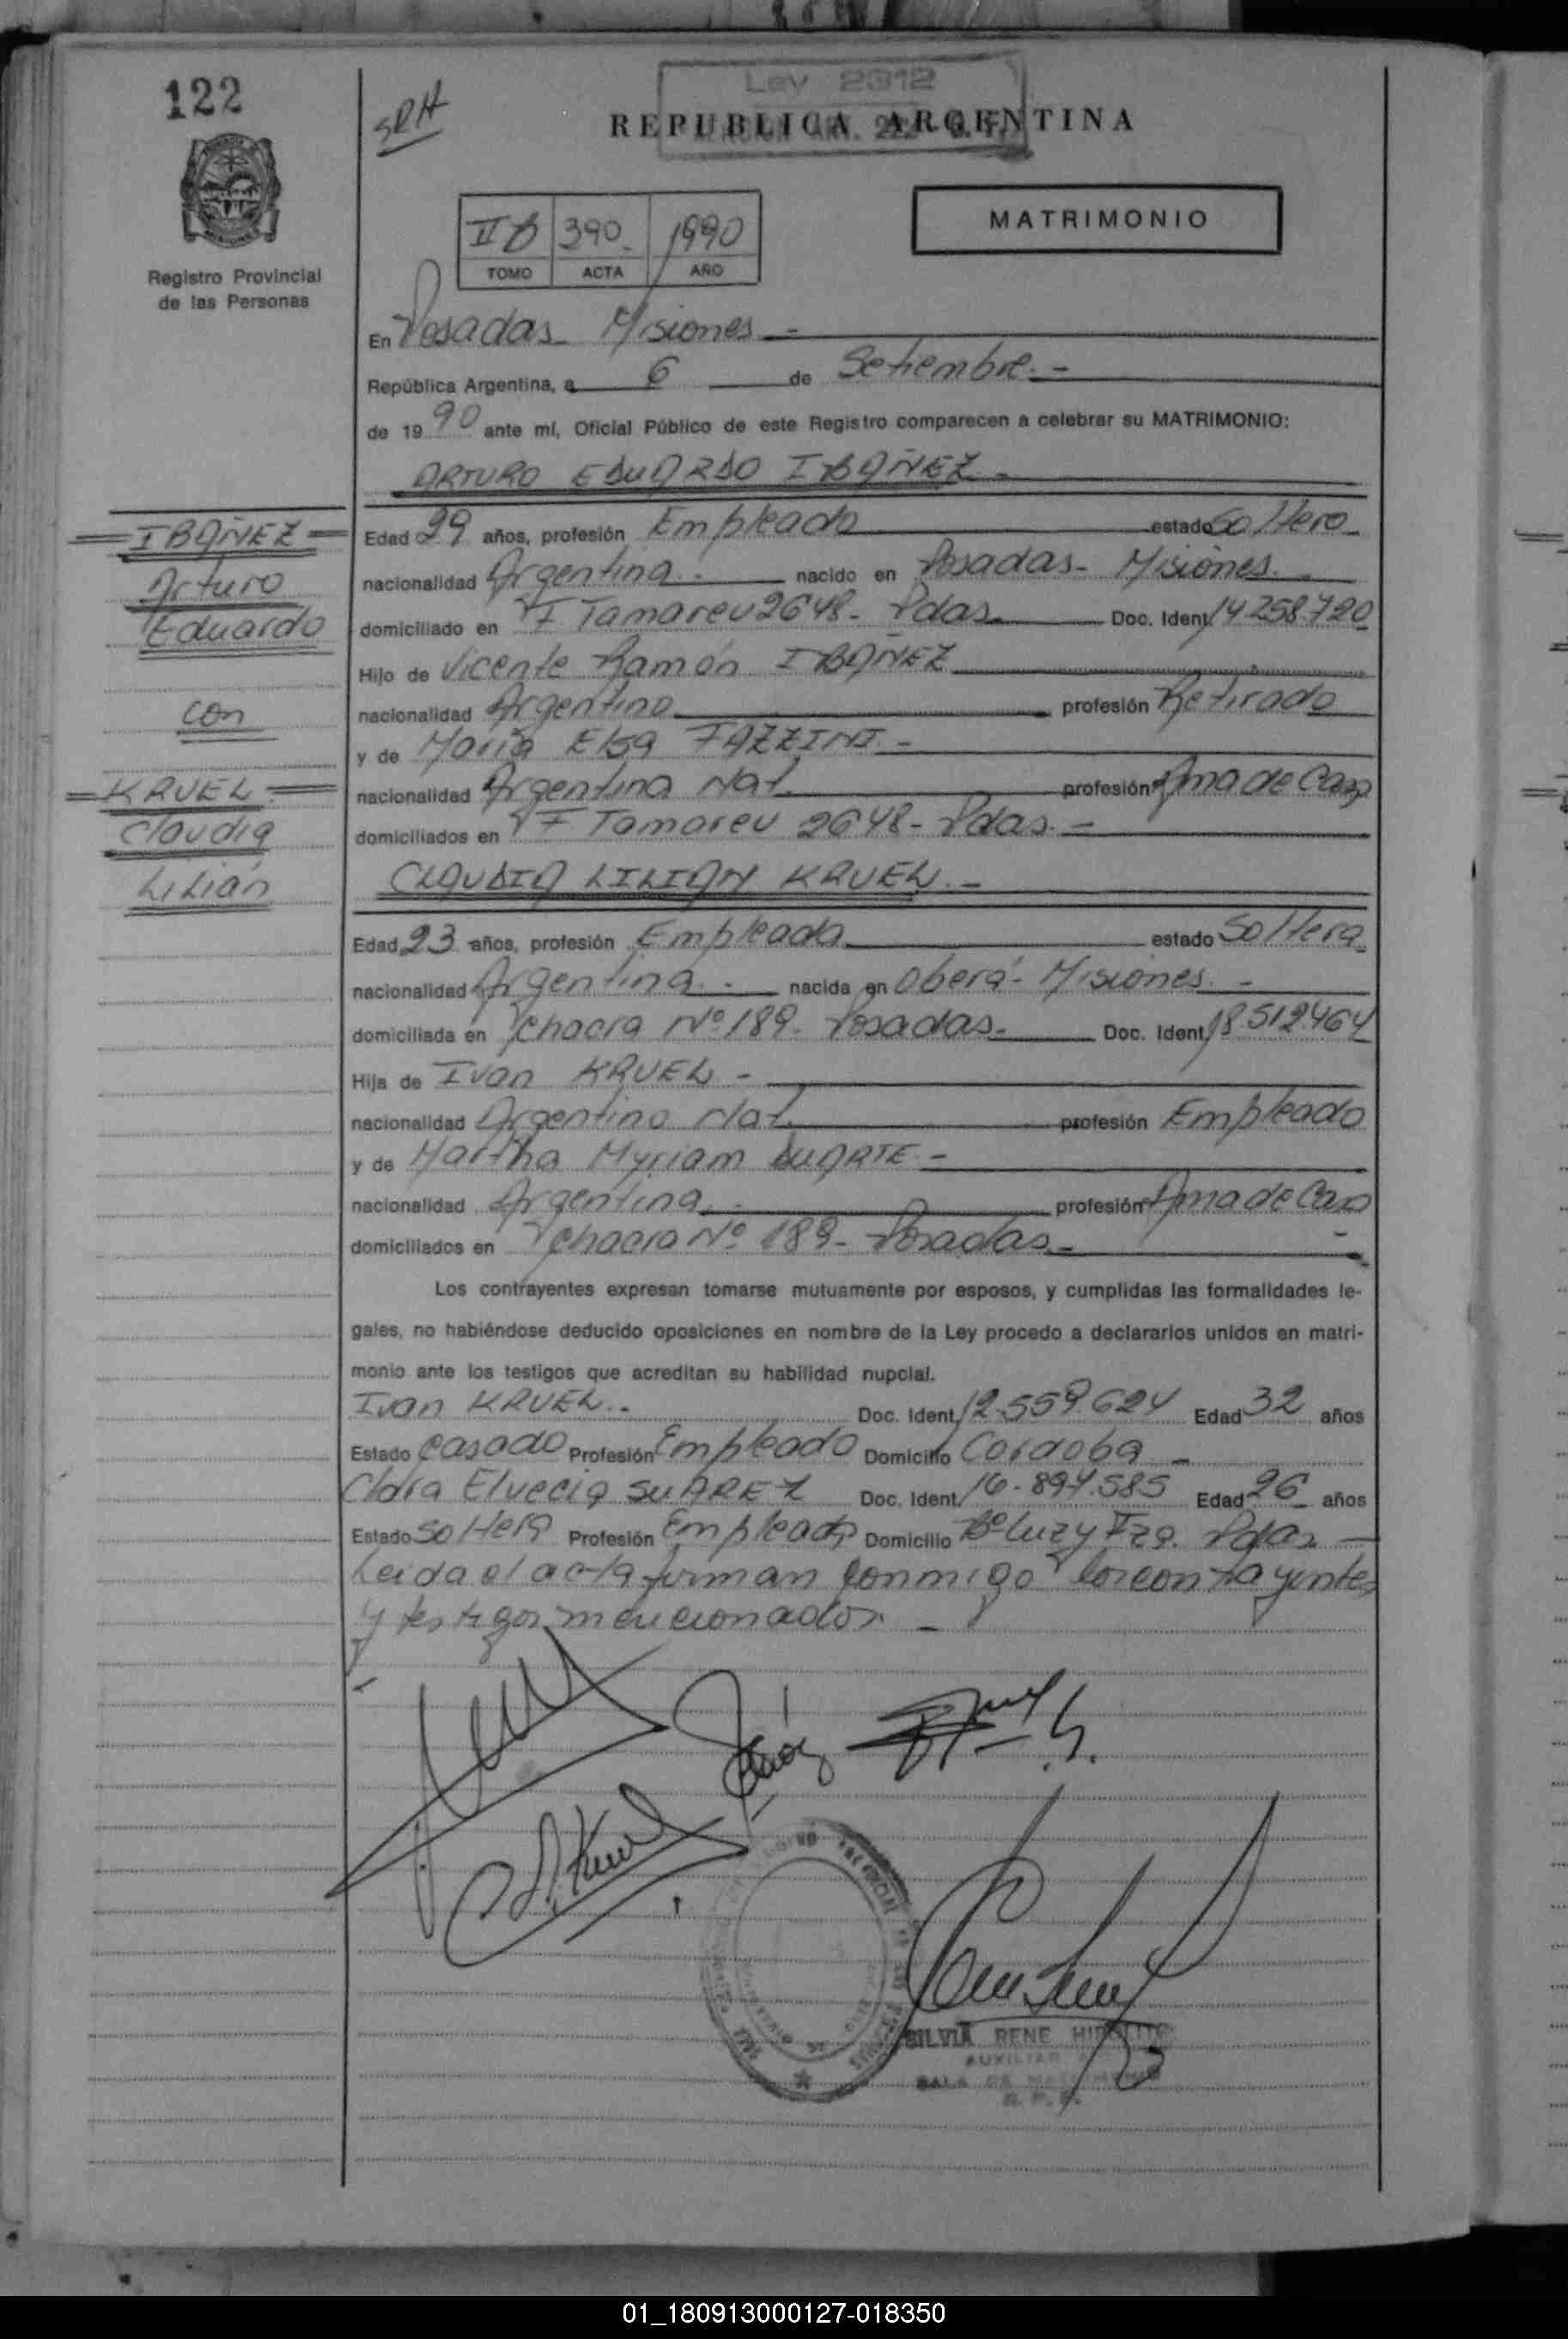 122
SRH
Ley 2312
REPUBLICA ARGENTINA
II B 390 1990
TOMO ACTA AÑO
MATRIMONIO
Registro Provincial
de las Personas
En Posadas - Misiones -
República Argentina, a 6 de Setiembre. -
de 19 90 ante mí, Oficial Público de este Registro comparecen a celebrar su MATRIMONIO:
ARTURO EDUARDO IBAÑEZ -
= IBAÑEZ =
Arturo
Eduardo
con
= KRUEL =
Claudia
Lilián
Edad 29 años, profesión Empleado estado Soltero
nacionalidad Argentina.- nacido en Posadas- Misiones.
domiciliado en Tamareu 2648- Pdas. Doc. Ident. 14.258.720
Hijo de Vicente Ramón IBAÑEZ
nacionalidad Argentino profesión Retirado
y de María Elsa FAZZINI. -
nacionalidad Argentina Nat. profesión Ama de Casa
domiciliados en Tamareu 2648- Pdas. -
CLAUDIA LILIAN KRUEL. -
Edad 23 años, profesión Empleada estado Soltera
nacionalidad Argentina. - nacida en Oberá- Misiones. -
domiciliada en Chacra Nº 189- Posadas- Doc. Ident. 18.512.464
Hija de Ivan KRUEL -
nacionalidad Argentino Nat. profesión Empleado
y de Martha Myriam DUARTE -
nacionalidad Argentina. - profesión Ama de Casa
domiciliados en Chacra Nº 189- Posadas-
Los contrayentes expresan tomarse mutuamente por esposos, y cumplidas las formalidades le-
gales, no habiéndose deducido oposiciones en nombre de la Ley procedo a declararlos unidos en matri-
monio ante los testigos que acreditan su habilidad nupcial.
Ivan KRUEL.. Doc. Ident. 12.559.624 Edad 32 años
Estado Casado Profesión Empleado Domicilio Cordoba -
Clara Elvecia SUAREZ Doc. Ident. 16.897.585 Edad 26 años
Estado Soltera Profesión Empleada Domicilio Bº Luz y Fza. Pdas. -
Leida el acta firman conmigo los contrayentes
y testigos mencionados. -
SILVIA RENE HIPOLITO
AUXILIAR
SALA DE MATRIMONIO
01_180913000127-018350